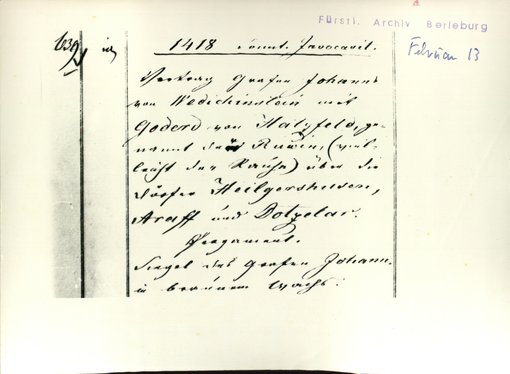 Fürstl. Archiv Berleburg
Februar 13
1418 Sonnt. Invocavit.
Vertrag Grafen Johann
von Wedichinstein mit
Goderd von Hatzfeld, ge-
nannt der Ruwen, (viel-
leicht der Rauhe) über die
Dörfer Heilgershusen,
Araff und Dotzelar.
Pergament.
Siegel des Grafen Johann
in braunem Wachs.